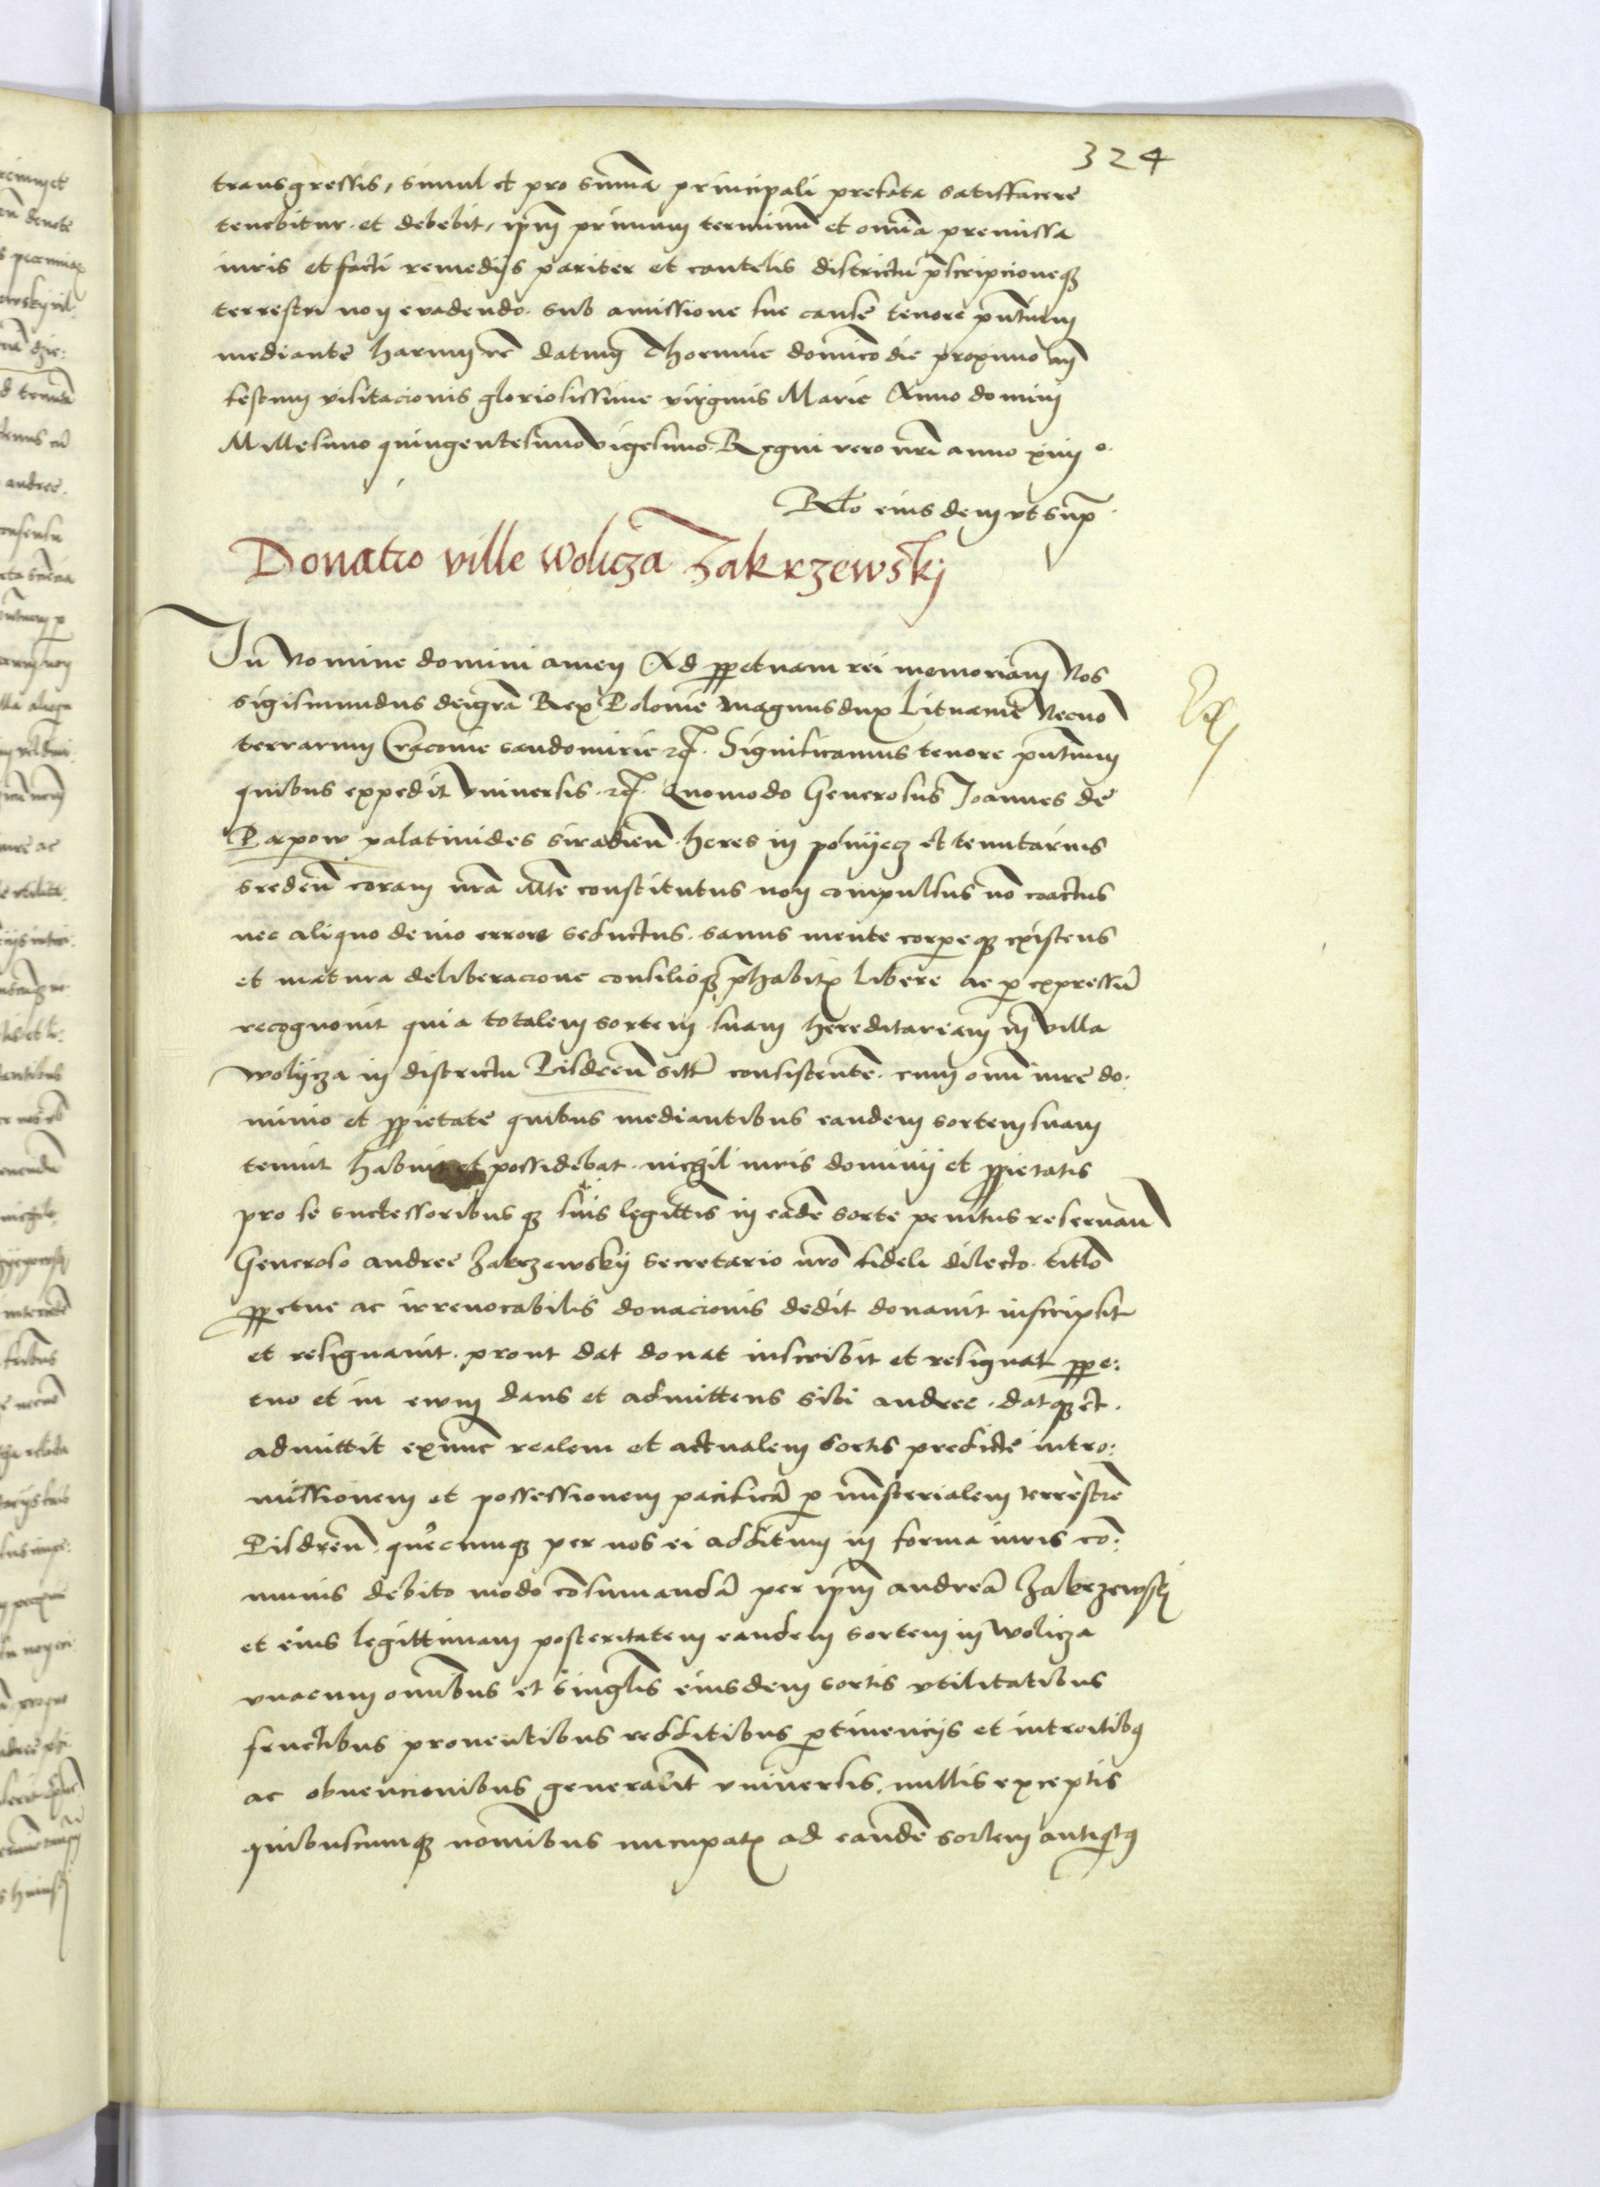 324
transgressis, simul et pro suma principali prefata satisfacere
tenebitur et debebit, ipm primum terminum et omnia premissa
iuris et facti remedijs pariter et cautelis districtu pscripcioneqz
terrestri non evadendo sub amissione sue cause tenore pntium
mediante harum rc datum Thorunie dominico die proximo an
festum visitacionis gloriosissime virginis Marie Anno domini
Millesimo quingentesimo vigesimo Regni vero nri anno xiiij o.
Rlo eiusdem ut sup
Donatio ville Wolicza Zakrzewskij
In Nomine domini amen Ad ppetuam rei memoriam Nos
Sigismundus dei gra Rex Polonie magnus dux Lituanie Necno
terrarum Cracouie sandomirie zc. Significamus tenore pntium
quibus expedit vniversis zc. Quomodo Generosus Joannes de
Parpow palatinides siradien heres in et tenutarius
sreden coram nra Mte constitutus non compulsus no coactus
nec aliquo deuio errore seductus sanus mente corpeqz existens
et matura deliberacione consilioqz phabitis libere ac p expressu
recognouit quia totalem sortem suam hereditariam in villa
wolijcza in districtu Pilsdren sitt consistente cum omni iure do
minio et ppietate quibus mediantibus eandem sortem suam
tenuit habuit et possidebat nichil iuris dominij et ppietatis
pro se successoribusqz suis legittis in eade sorte penitus reseruan
Generoso andree Zakrzewskij secretario nro fideli dilecto titlo
ppetue ac irreuocabilis donacionis dedit donauit inscripsit
et resignauit prout dat donat inscribit et resignat ppe:
tuo et in ewm dans et admittens sibi andree datqz et
admittit exnunc realem et actualem sortis predicte intro:
missionem et possessionem pacifica p ministerialem terrestre
Pilsdren quecumqz per nos ei additum in forma iuris co:
munis debito modo consumanda per ipm andrea Zakrzewskij
et eius legittimam posteritatem eandem sortem in wolicza
vnacum omnibus et singlis eiusdem sortis vtilitatibus
fructibus prouentibus redditibus ptinencijs et introitibus
ac obuencionibus generalit vniversis nullis exceptis
quibuscumqz nomibus nucupatis ad eande sortem antiqtus